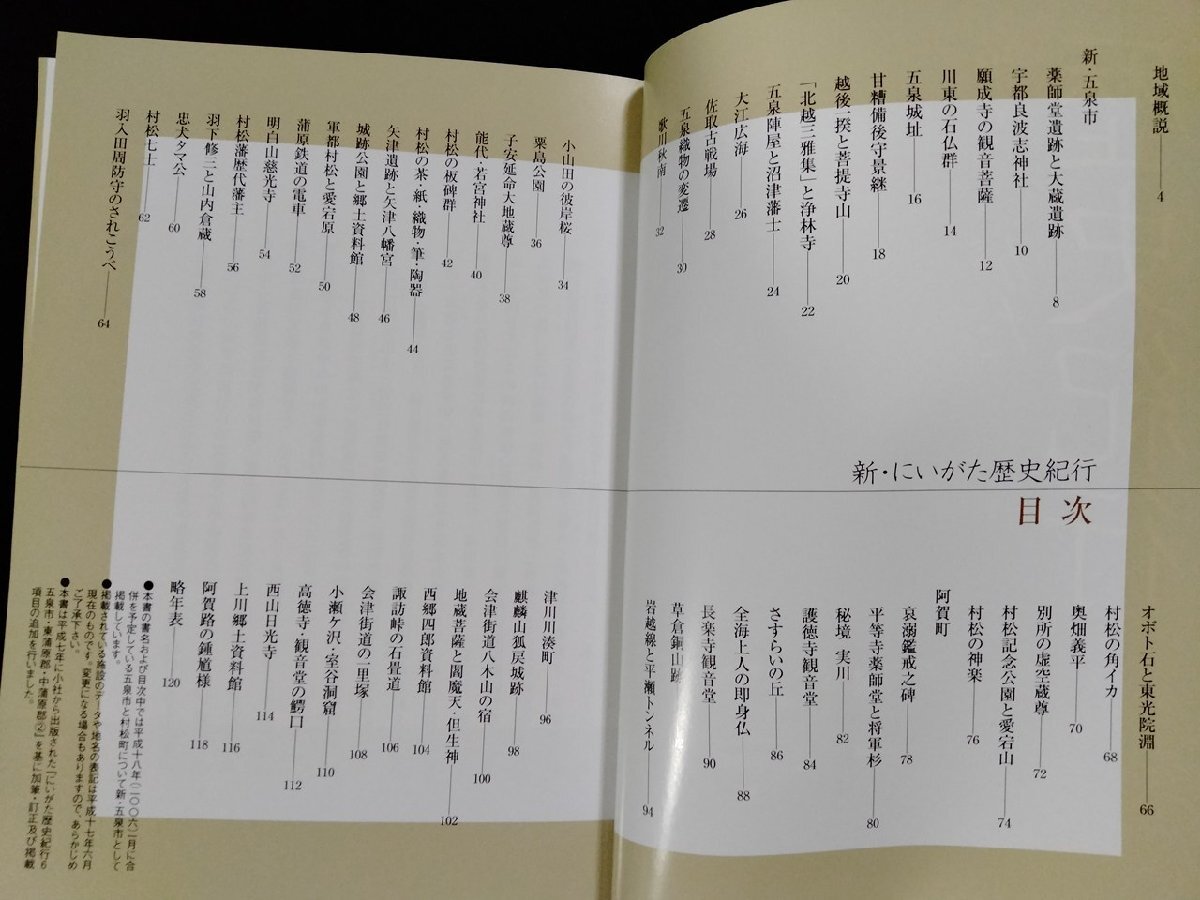 新・にいがた歴史紀行
目次
地域概説 4
新・五泉市
薬師堂遺跡と大蔵遺跡 8
宇都良波志神社 10
願成寺の観音菩薩 12
川東の石仏群 14
五泉城址 16
甘糟備後守景継 18
越後一揆と菩提寺山 20
「北越三雅集」と浄林寺 22
五泉陣屋と沼津藩士 24
大江広海 26
佐取古戦場 28
五泉織物の変遷 30
歌川秋南 32
小山田の彼岸桜 34
粟島公園 36
子安延命大地蔵尊 38
能代・若宮神社 40
村松の板碑群 42
村松の茶・紙・織物・筆・陶器 44
矢津遺跡と矢津八幡宮 46
城跡公園と郷土資料館 48
軍都村松と愛宕原 50
蒲原鉄道の電車 52
明白山慈光寺 54
村松藩歴代藩主 56
羽下修三と山内倉蔵 58
忠犬タマ公 60
村松七士 62
羽入田周防守のされこうべ 64
オボト石と東光院淵 66
村松の角イカ 68
奥畑義平 70
別所の虚空蔵尊 72
村松記念公園と愛宕山 74
村松の神楽 76
阿賀町
哀溺鑑戒之碑 78
平等寺薬師堂と将軍杉 80
秘境 実川 82
護徳寺観音堂 84
さすらいの丘 86
全海上人の即身仏 88
長楽寺観音堂 90
草倉銅山跡
岩越線と平瀬トンネル 94
津川川湊町 96
麒麟山狐戻城跡 98
会津街道八木山の宿 100
地蔵菩薩と閻魔天、但生神 102
西郷四郎資料館 104
諏訪峠の石畳道 106
会津街道の一里塚 108
小瀬ヶ沢・室谷洞窟 110
高徳寺・観音堂の鰐口 112
西山日光寺 114
上川郷土資料館 116
阿賀路の鍾馗様 118
略年表 120
●本書の書名および目次中では平成十八年(二〇〇六)一月に合
併を予定している五泉市と村松町について新・五泉市として
掲載しています。
●掲載されている施設のデータや地名の表記は平成十七年六月
現在のものです。変更になる場合もありますので、あらかじめ
ご了承下さい。
●本書は平成七年に小社から出版された『にいがた歴史紀行6
五泉市・東蒲原郡・中蒲原郡②』を基に加筆・訂正及び掲載
項目の追加を行いました。